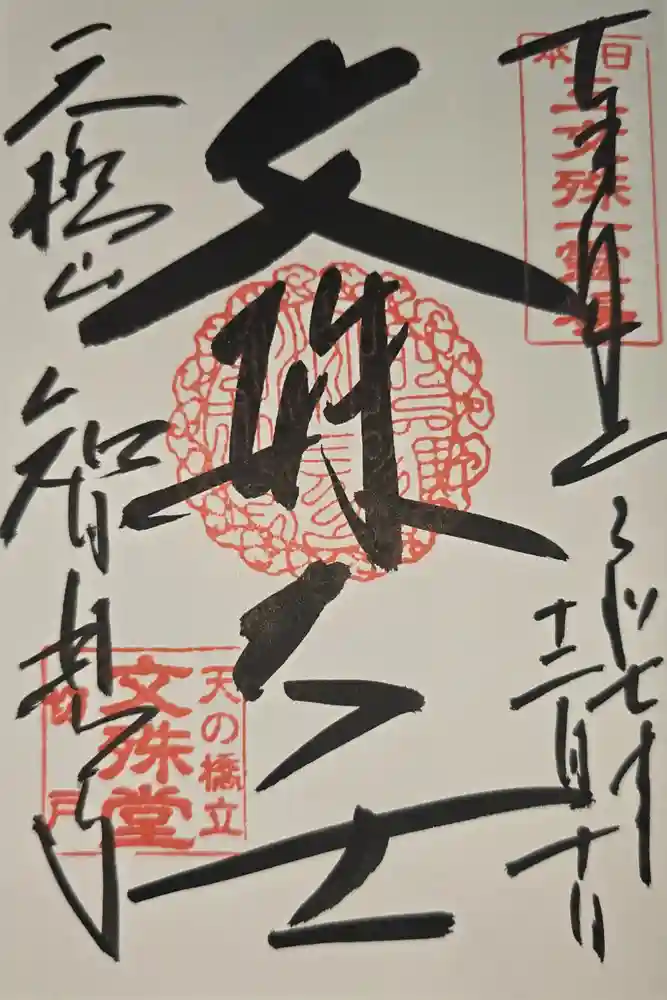 奉拝
令和七年
十二月十日
日本
三文殊一霊場
文殊大士
天橋山
智恩寺
天の橋立
文殊堂
切戸